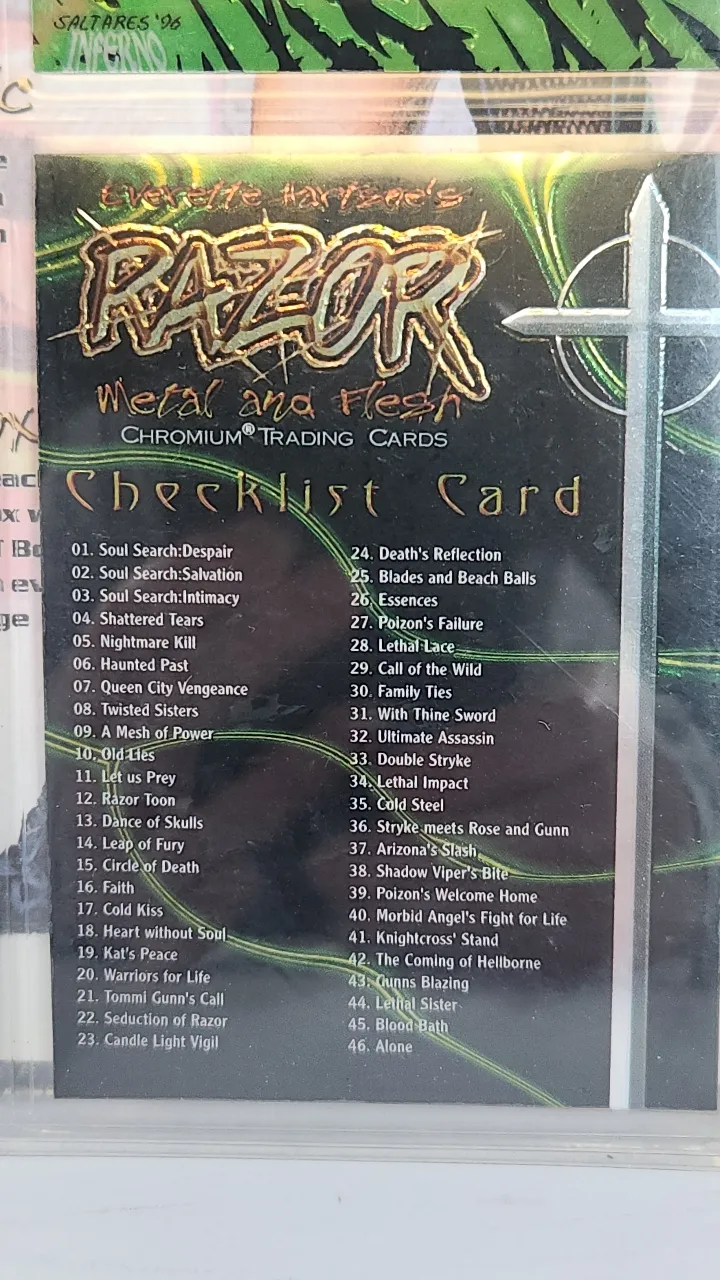 SALTARES '96
INFERNO
Everette Hartsoe's
RAZOR
Metal and Flesh
CHROMIUM® TRADING CARDS
Checklist Card
01. Soul Search:Despair
02. Soul Search:Salvation
03. Soul Search:Intimacy
04. Shattered Tears
05. Nightmare Kill
06. Haunted Past
07. Queen City Vengeance
08. Twisted Sisters
09. A Mesh of Power
10. Old Lies
11. Let us Prey
12. Razor Toon
13. Dance of Skulls
14. Leap of Fury
15. Circle of Death
16. Faith
17. Cold Kiss
18. Heart without Soul
19. Kat's Peace
20. Warriors for Life
21. Tommi Gunn's Call
22. Seduction of Razor
23. Candle Light Vigil
24. Death's Reflection
25. Blades and Beach Balls
26. Essences
27. Poizon's Failure
28. Lethal Lace
29. Call of the Wild
30. Family Ties
31. With Thine Sword
32. Ultimate Assassin
33. Double Stryke
34. Lethal Impact
35. Cold Steel
36. Stryke meets Rose and Gunn
37. Arizona's Slash
38. Shadow Viper's Bite
39. Poizon's Welcome Home
40. Morbid Angel's Fight for Life
41. Knightcross' Stand
42. The Coming of Hellborne
43. Gunns Blazing
44. Lethal Sister
45. Blood Bath
46. Alone